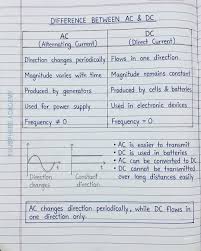 DIFFERENCE BETWEEN AC & DC
AC
(Alternating Current)
DC
(Direct Current)
Direction changes periodically
Flows in one direction
Magnitude varies with time
Magnitude remains constant
Produced by generators
Produced by cells & batteries
Used for power supply
Used in electronic devices
Frequency ≠ 0
Frequency = 0
Direction
changes
Constant
direction
• AC is easier to transmit
• DC is used in batteries
• AC can be converted to DC
• DC cannot be transmitted
over long distances easily
AC changes direction periodically, while DC flows in
one direction only.